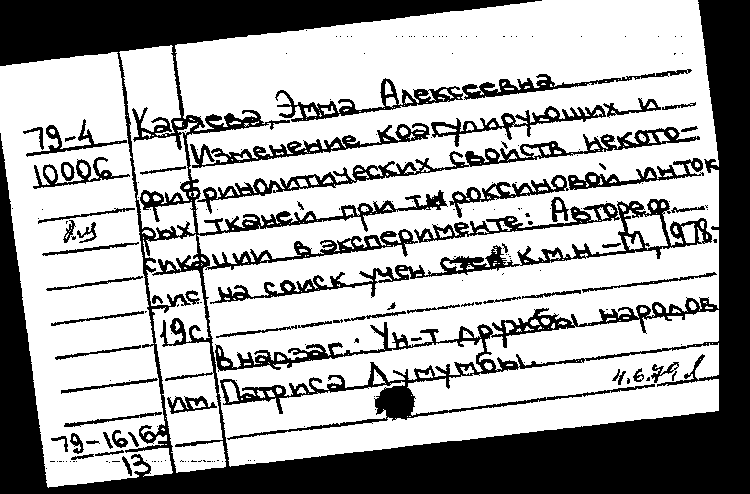 Каряева, Эмма Алексеевна.
79-4
Изменение коагулирующих и
10006
фибринолитических свойств некото-
рых тканей при тироксиновой инток
сикации в эксперименте: Автореф.
дис на соиск учен. степ. к.м.н. - М., 1978.-
19с.
В надзаг.: Ун-т дружбы народов
им. Патриса Лумумбы.
4.6.79
79-16169
13